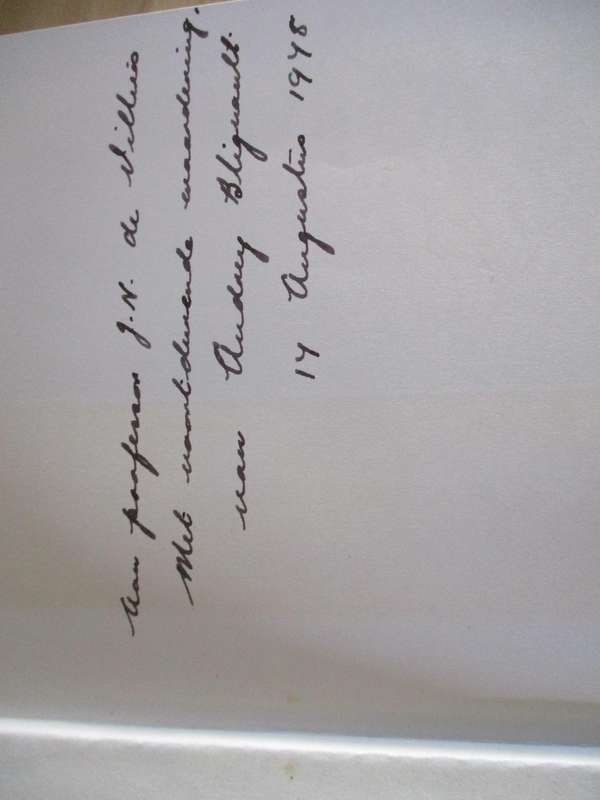 Aan professor J.N. de Villiers
Met voortdurende waardering.
van Audrey Blignault.
14 Augustus 1978